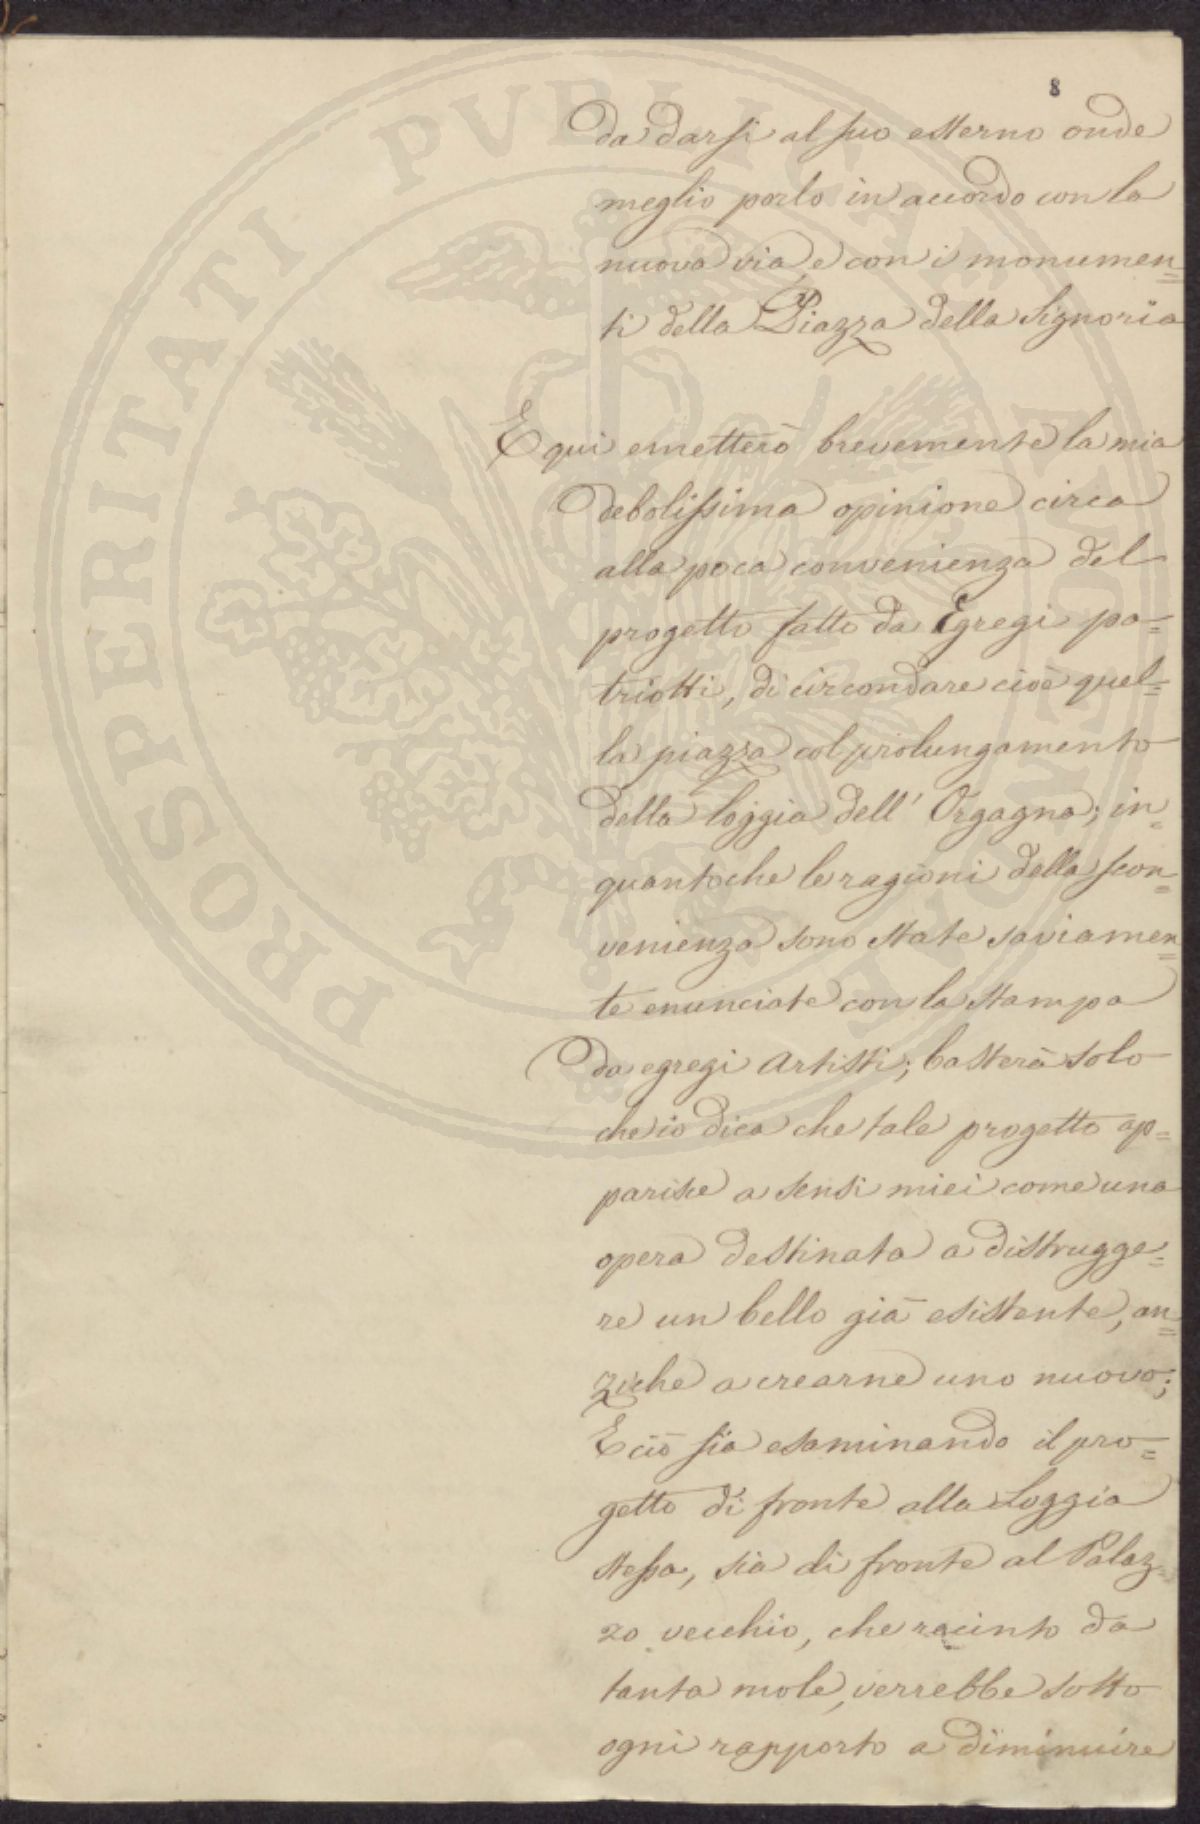 8
da darsi al suo esterno onde
meglio porlo in accordo con la
nuova via e con i monumen=
ti della Piazza della Signoria
E qui emetterò brevemente la mia
debolissima opinione circa
alla poca convenienza del
progetto fatto da Egregi pa=
triotti, di circondare cioè quel=
la piazza col prolungamento
della loggia dell' Orgagna; in=
quantoche le ragioni della scon=
venienza sono state saviamen=
te enunciate con la stampa
da egregi Artisti; basterà solo
che io dica che tale progetto ap=
parisce a sensi miei come una
opera destinata a distrugge=
re un bello già esistente, an=
ziche a crearne uno nuovo;
E ciò sia esaminando il pro=
getto di fronte alla Loggia
stessa, sia di fronte al Palaz=
zo vecchio, che racinto da
tanta mole, verrebbe sotto
ogni rapporto a diminuire
PROSPERITATI PVBLICAE